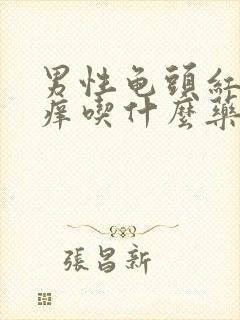 男性龟頭紅
痒喫什麼藥
張昌新